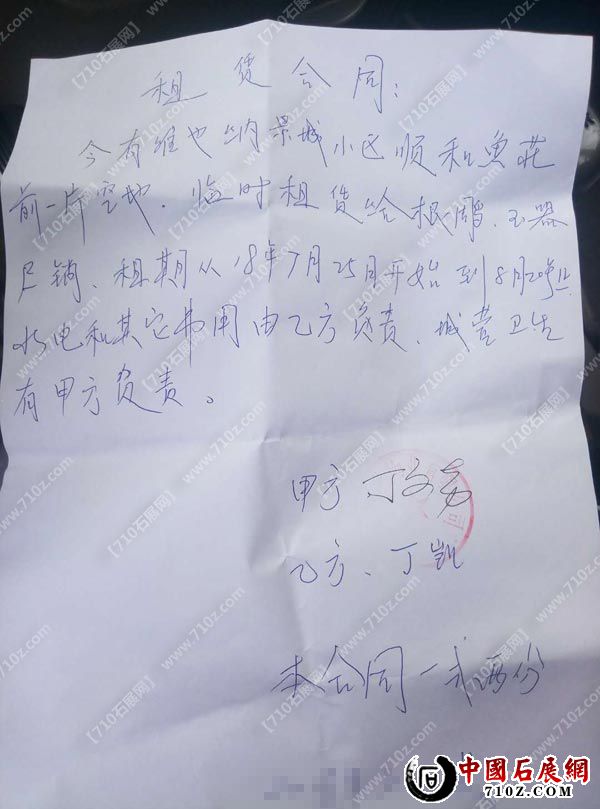 租赁合同:
今有维也纳景城小区顺和鱼花
前一片空地.临时租赁给根雕、玉器
展销、租期从18年7月25日开始到8月20号止
水电和其它费用由乙方负责、城管卫生
有甲方负责。
甲方 丁文
乙方、丁凯
本合同一式两份
中國石展網
710Z.com
【710石展网】
www.710z.com